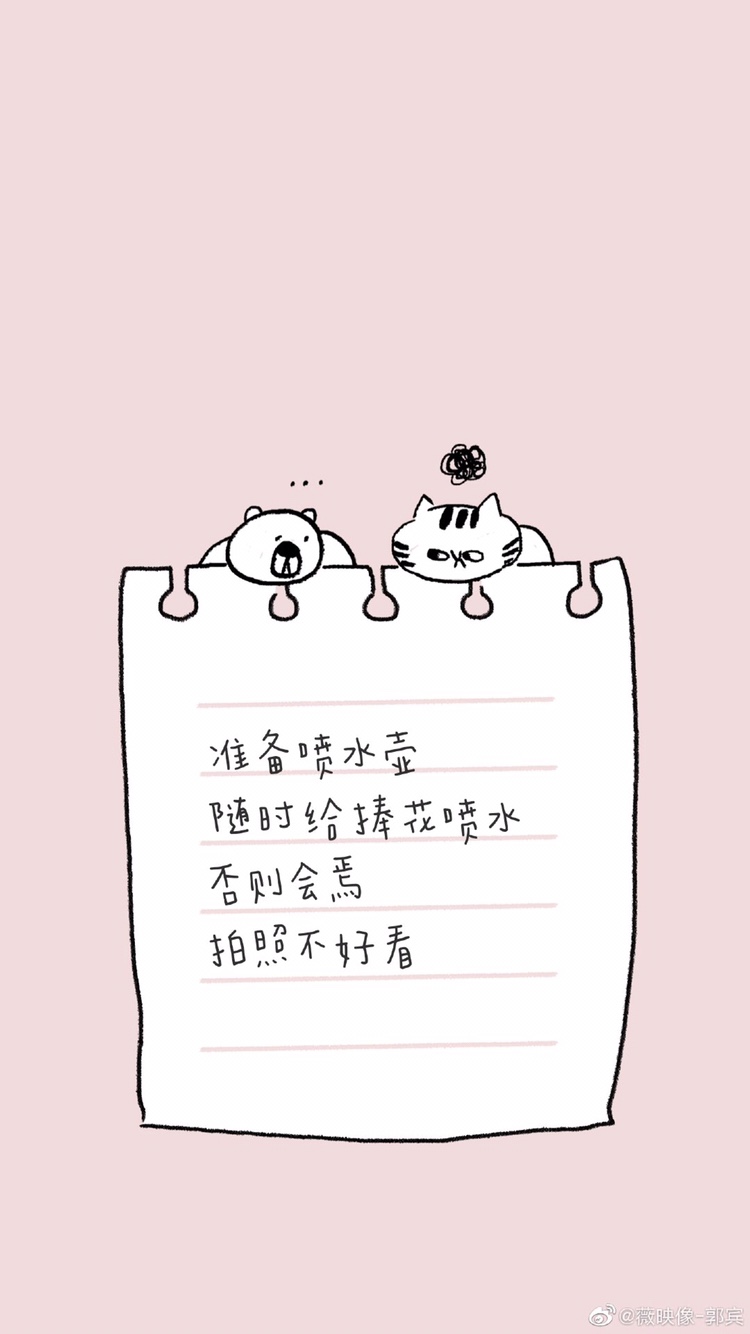 准备喷水壶
随时给捧花喷水
否则会焉
拍照不好看
@薇映像-郭宾